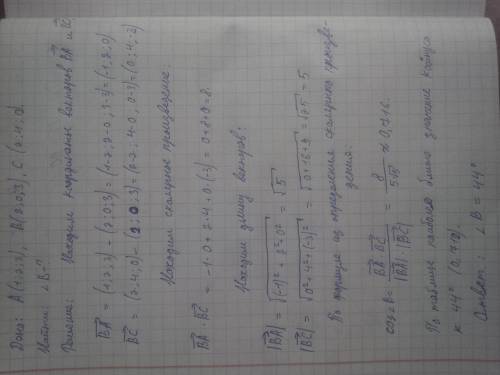 Дано: A(1;2;3), B(2;0;3), C(2;4;0)
Найти: ∠B-?
Решение: Находим координаты векторов BA и BC
BA = (1;2;3) - (2;0;3) = (1-2; 2-0; 3-3) = (-1;2;0)
BC = (2;4;0) - (2;0;3) = (2-2; 4-0; 0-3) = (0;4;-3)
Находим скалярное произведение.
BA · BC = -1·0 + 2·4 + 0·(-3) = 0+8+0 = 8.
Находим длину векторов:
|BA| = √((-1)²+2²+0²) = √5
|BC| = √(0²+4²+(-3)²) = √(0+16+9) = √25 = 5.
По формуле из определения скалярного произве-
дения.
cos∠B = BA·BC / |BA|·|BC| = 8 / 5√5 ≈ 0,716.
По таблице наиболее близко значение косинуса
к 44° (0,719).
Ответ: ∠B = 44°